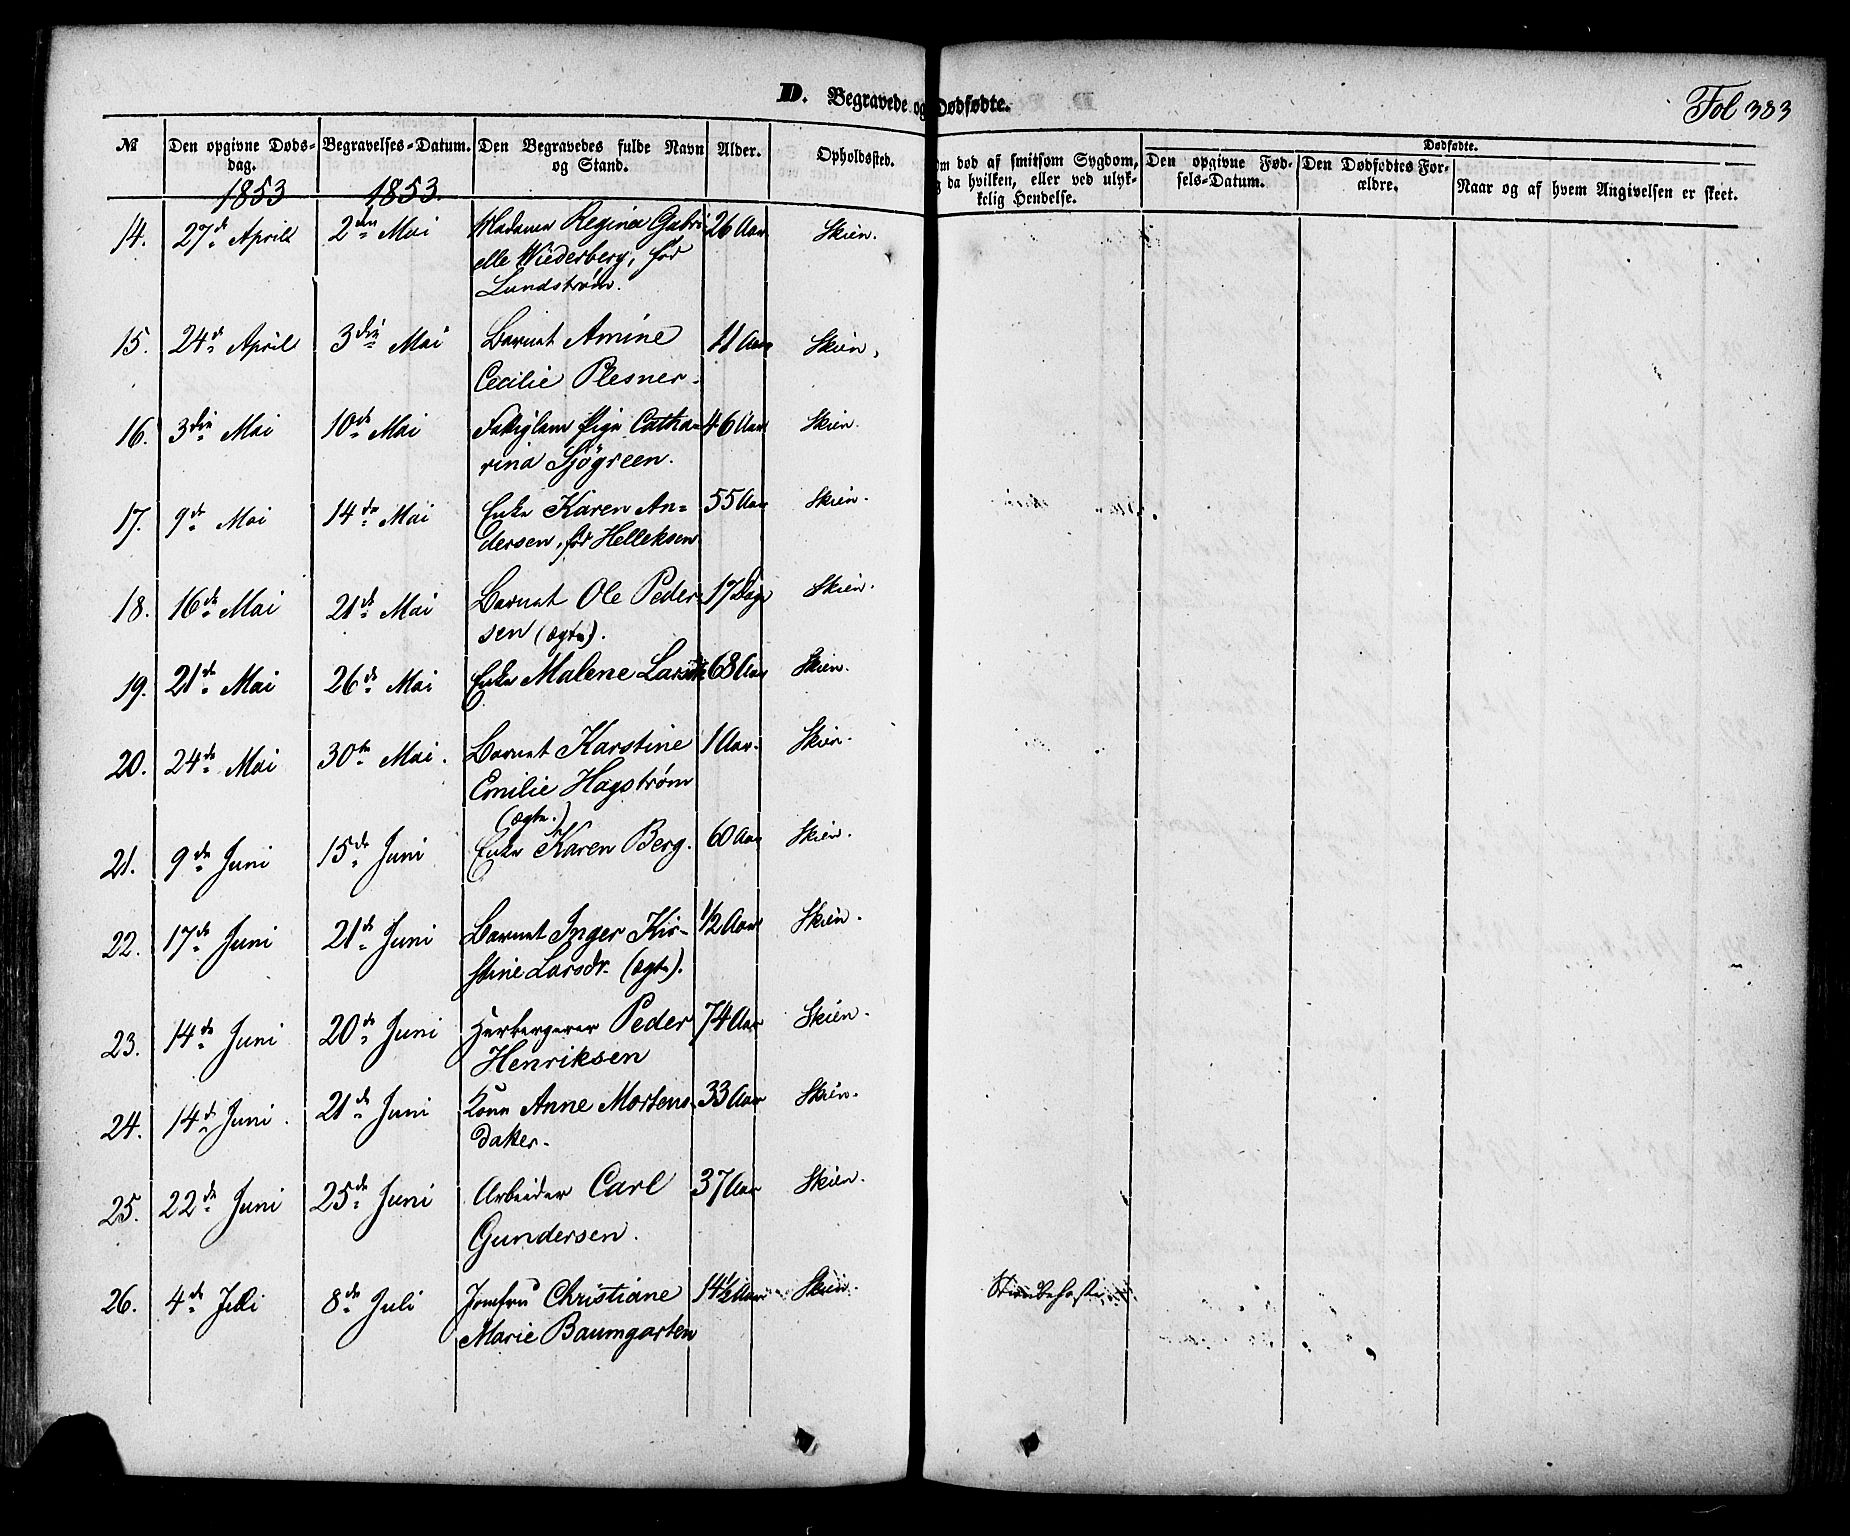 D. Begravede og Dødfødte.
Fol 383
№ | Den opgivne Døds-dag. | Begravelses-Datum. | Den Begravedes fulde Navn og Stand. | Alder. | Opholdssted. | Om død af smitsom Sygdom, og da hvilken, eller ved ulyk-kelig Hendelse. | Dødfødte. Den opgivne Fød-sels-Datum. | Den Dødfødtes For-ældre. | Naar og af hvem Angivelsen er skeet.
1853 | 1853.
14. | 27de April | 2den Mai | Madame Regina Gabri- | 26 Aar | Skien.
elle Wiederberg, fød
Lundstrøm.
15. | 24de April | 3die Mai | Barnet Amine | 11 Aar | Skien.
Cecilie Plesner.
16. | 3die Mai | 10de Mai | Fattiglem Pige Catha- | 46 Aar | Skien.
rina Sjögreen.
17. | 9de Mai | 14de Mai | Enke Karen An- | 55 Aar | Skien.
dersen, fød Helleksen
18. | 16de Mai | 21de Mai | Barnet Ole Peder- | 17 Dage | Skien.
sen (ægte).
19. | 21de Mai | 26de Mai | Enke Malene | 68 Aar | Skien.
20. | 24de Mai | 30te Mai. | Barnet Karstine | 1 Aar. | Skien.
Emilie Hagstrøm
(ægte.)
21. | 9de Juni | 15de Juni | Enke Karen Berg. | 60 Aar | Skien.
22. | 17de Juni | 21de Juni | Barnet Inger Kir- | 1/2 Aar | Skien.
stine Larsdr. (ægte).
23. | 14de Juni | 20de Juni | Herbergerer Peder | 74 Aar | Skien.
Henriksen
24. | 14de Juni. | 21de Juni | Kone Anne Mortens- | 33 Aar | Skien.
datter.
25. | 22de Juni | 25de Juni | Arbeider Carl | 37 Aar | Skien.
Gundersen.
26. | 4de Juli | 8de Juli | Jomfru Christiane | 14 1/2 Aar | Skien.
Marie Baumgarten